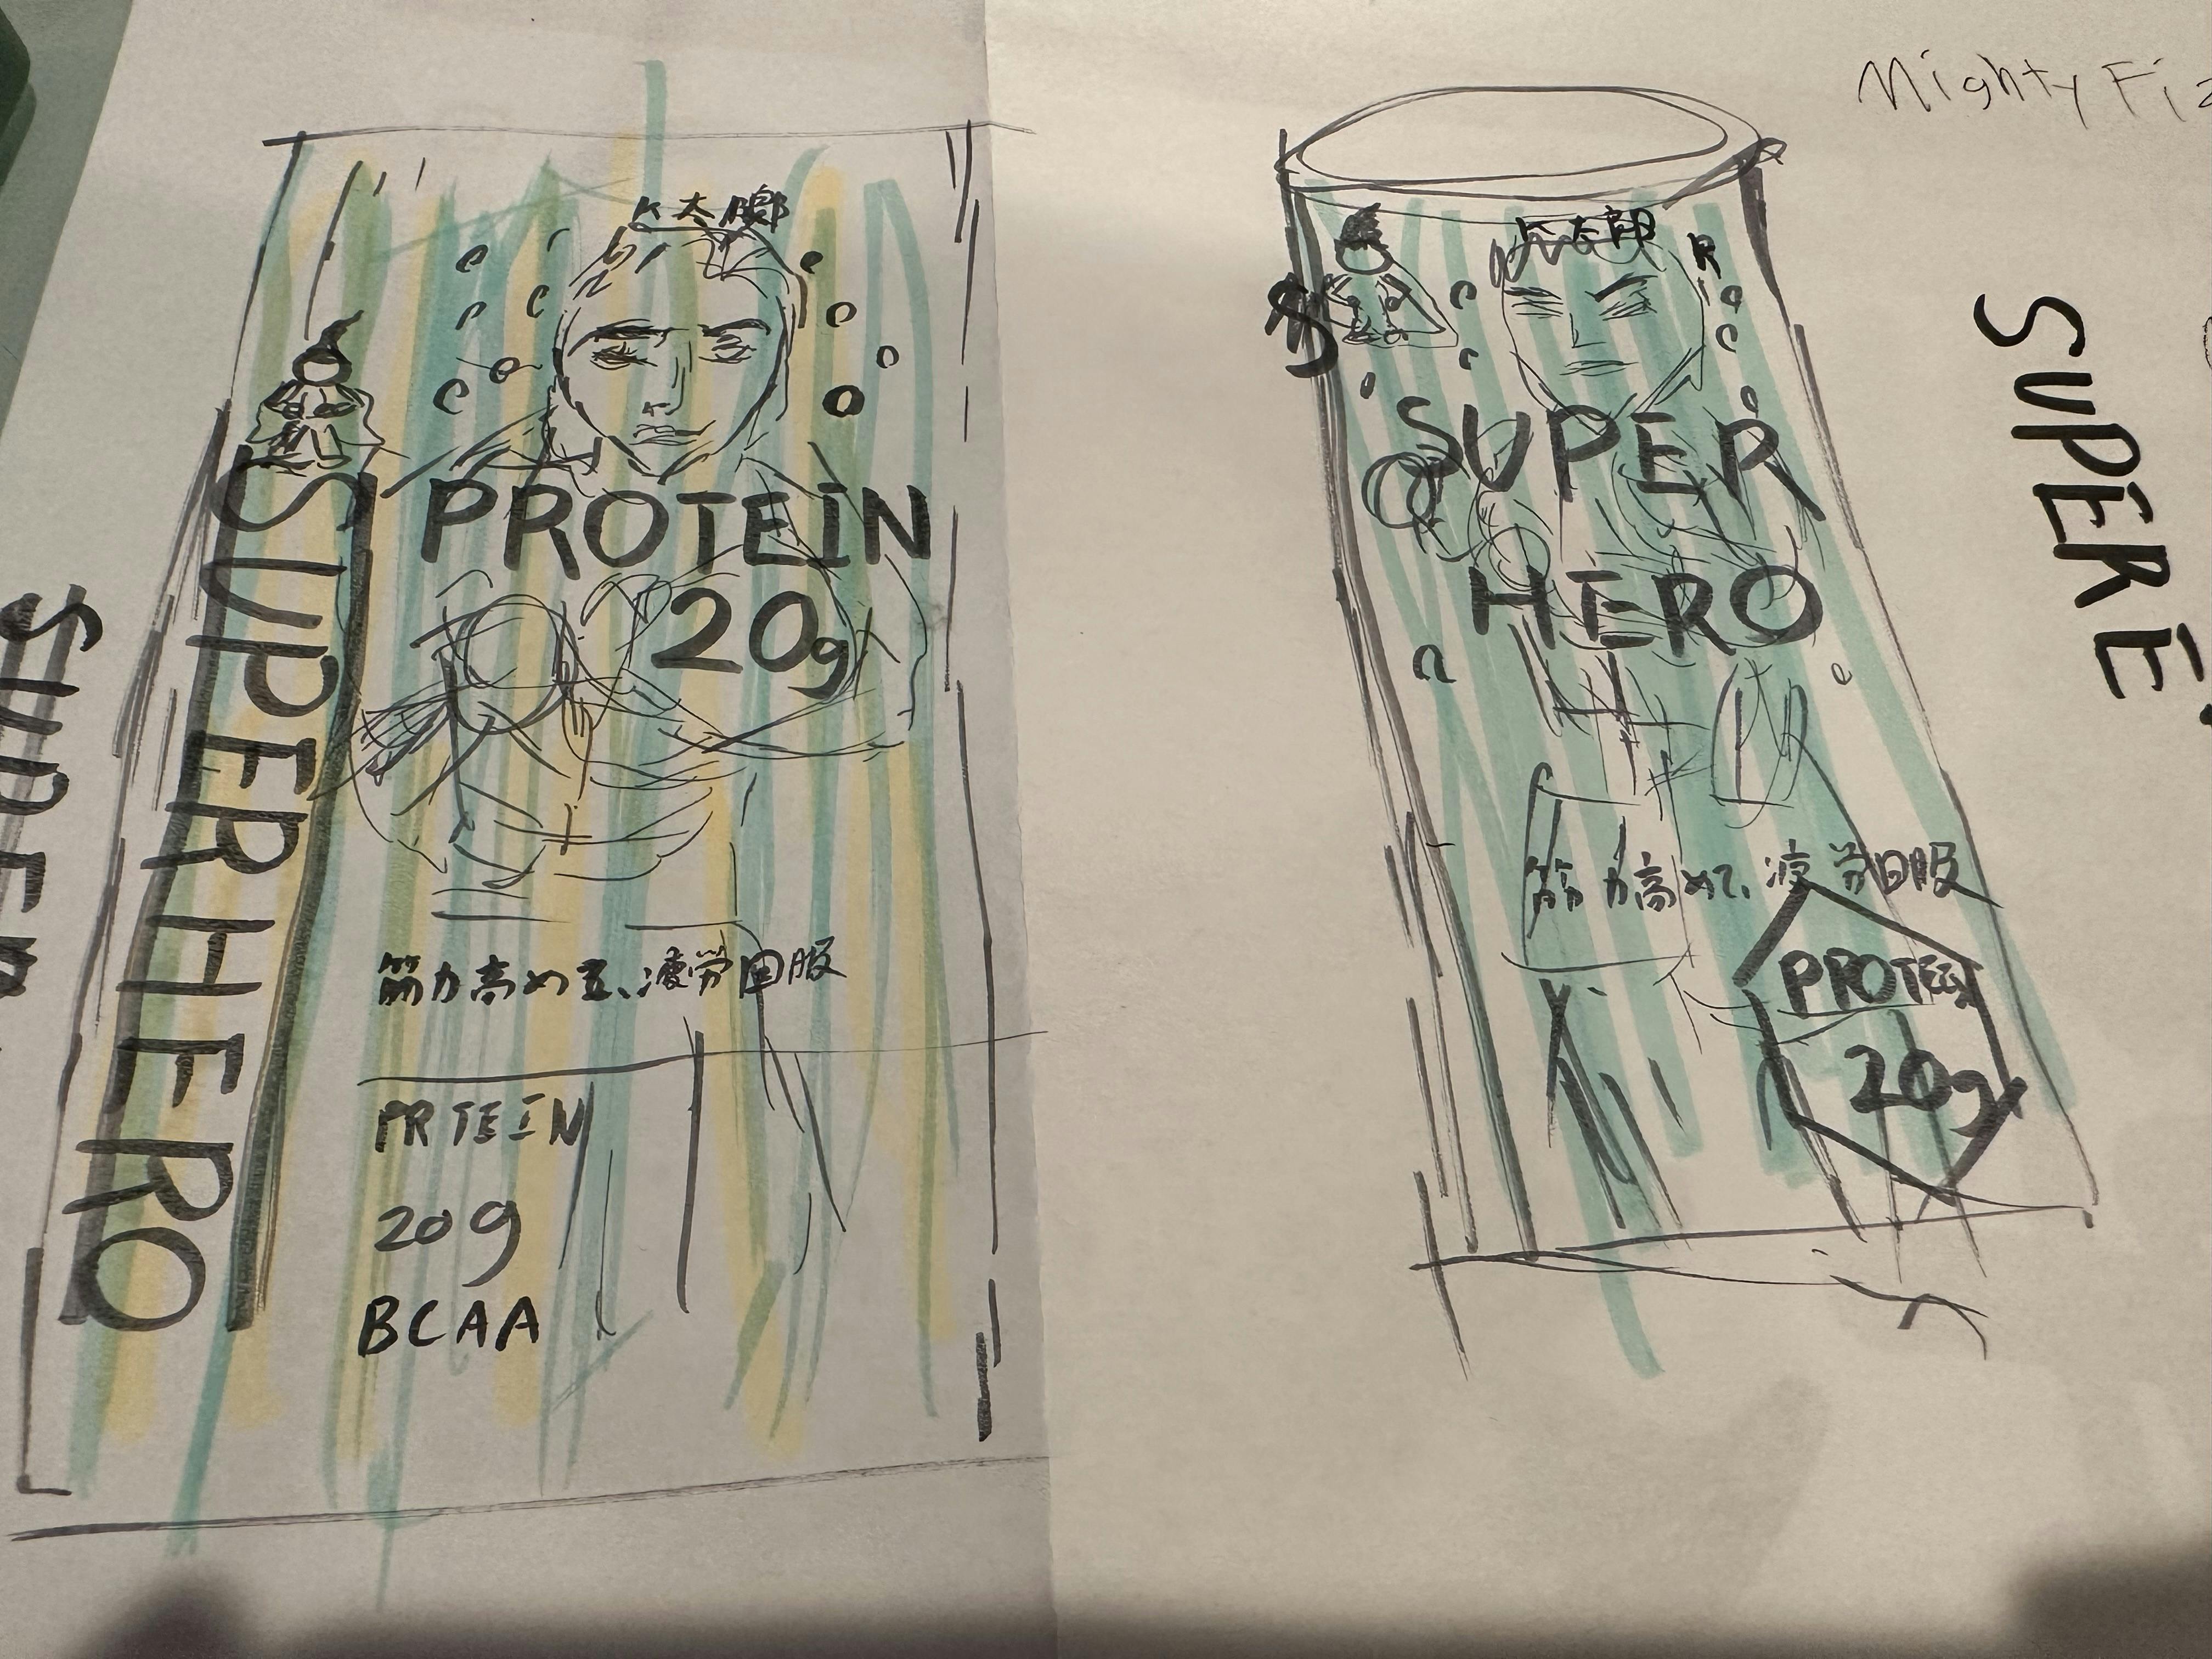 SUPER
SUPERHERO
太郎
PROTEIN
20g
筋力高める、疲労回服
PRTEIN
20g
BCAA
Mighty Fiz
太郎
S
SUPER
HERO
筋力高めて、疲労回服
PROTEIN
20g
SUPER